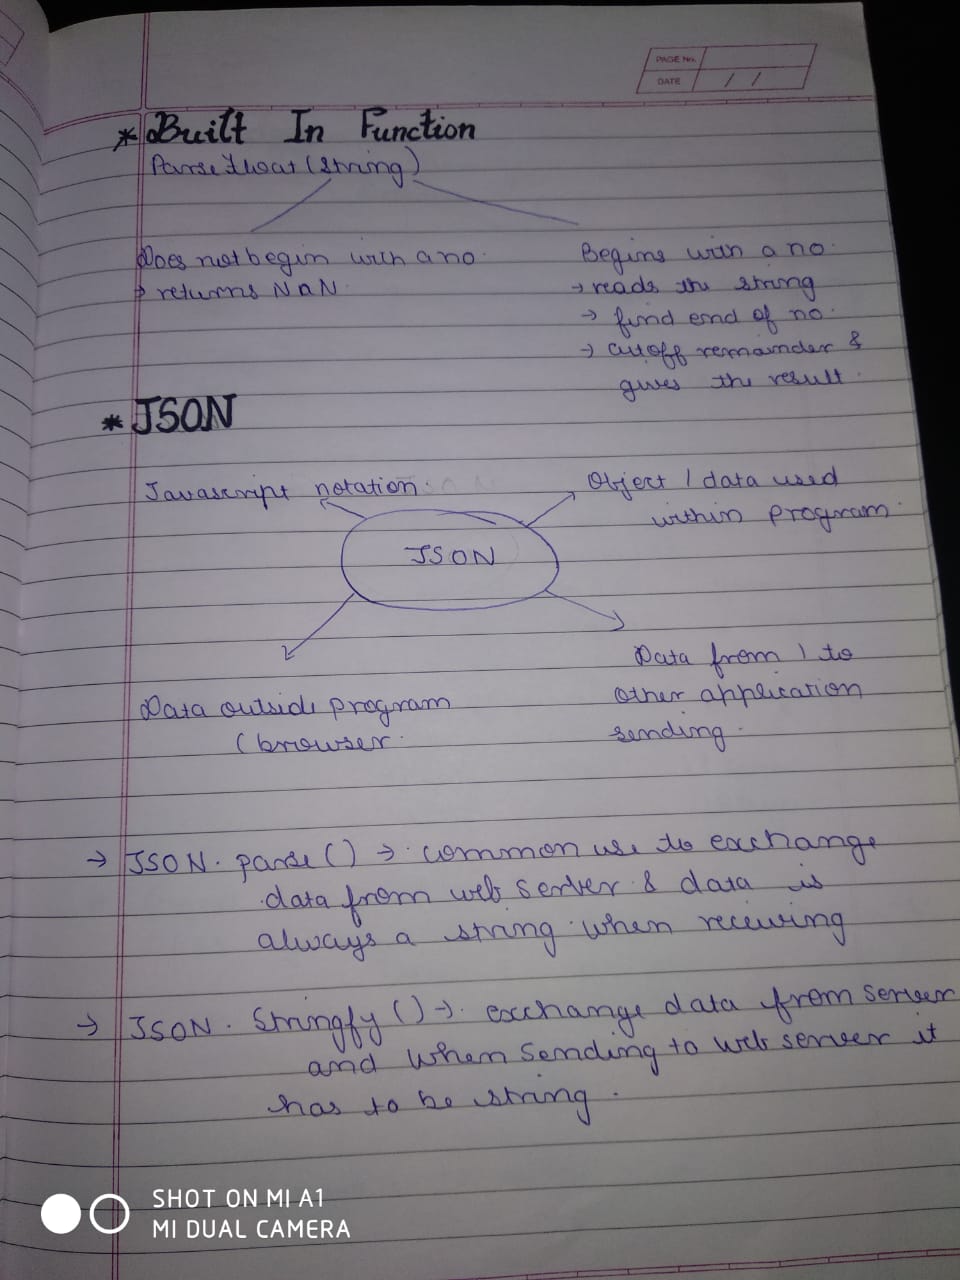 PAGE No.
DATE / /
* Built In Function
Parsefloat (string)
Does not begin with a no.
→ returns NaN.
Begins with a no.
→ reads the string
→ find end of no.
→ cutoff remainder &
gives the result.
* JSON
Javascript notation.
Object / data used
within program.
JSON
Data from 1 to
other application
sending.
Data outside program
(browser.
→ JSON. parse () → common use to exchange
data from web server & data is
always a string when receiving
→ JSON. Stringfy () → exchange data from server
and when sending to web server it
has to be string.
SHOT ON MI A1
MI DUAL CAMERA